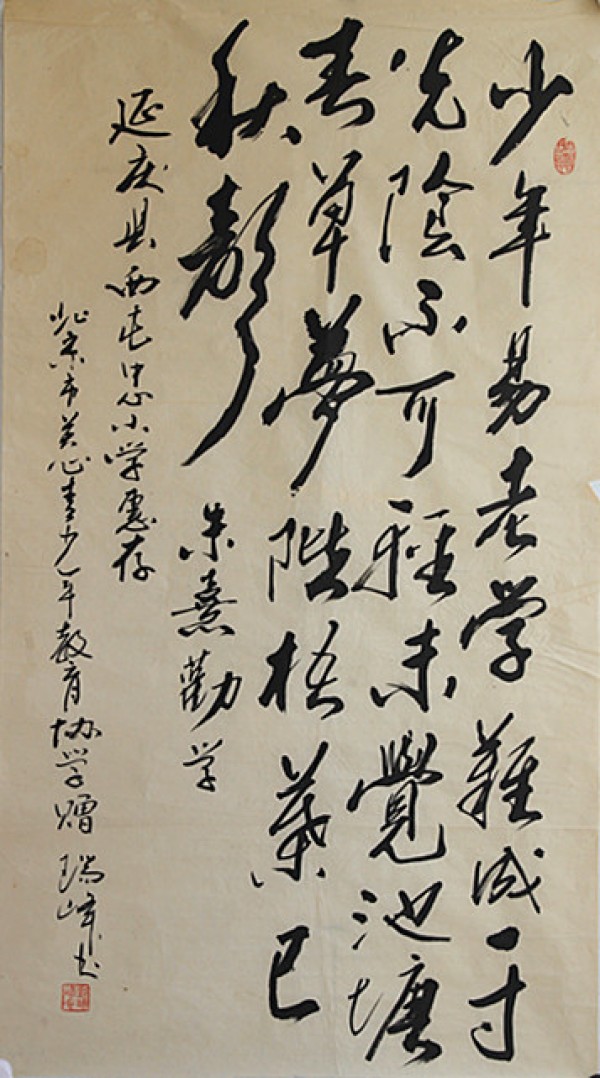 少年易老学难成一寸
光陰不可轻未覺池塘
春草夢階梧葉已
秋声 朱熹勸学
延庆县西屯中心小学惠存
北京市关心青少年教育协学赠 瑞峰书